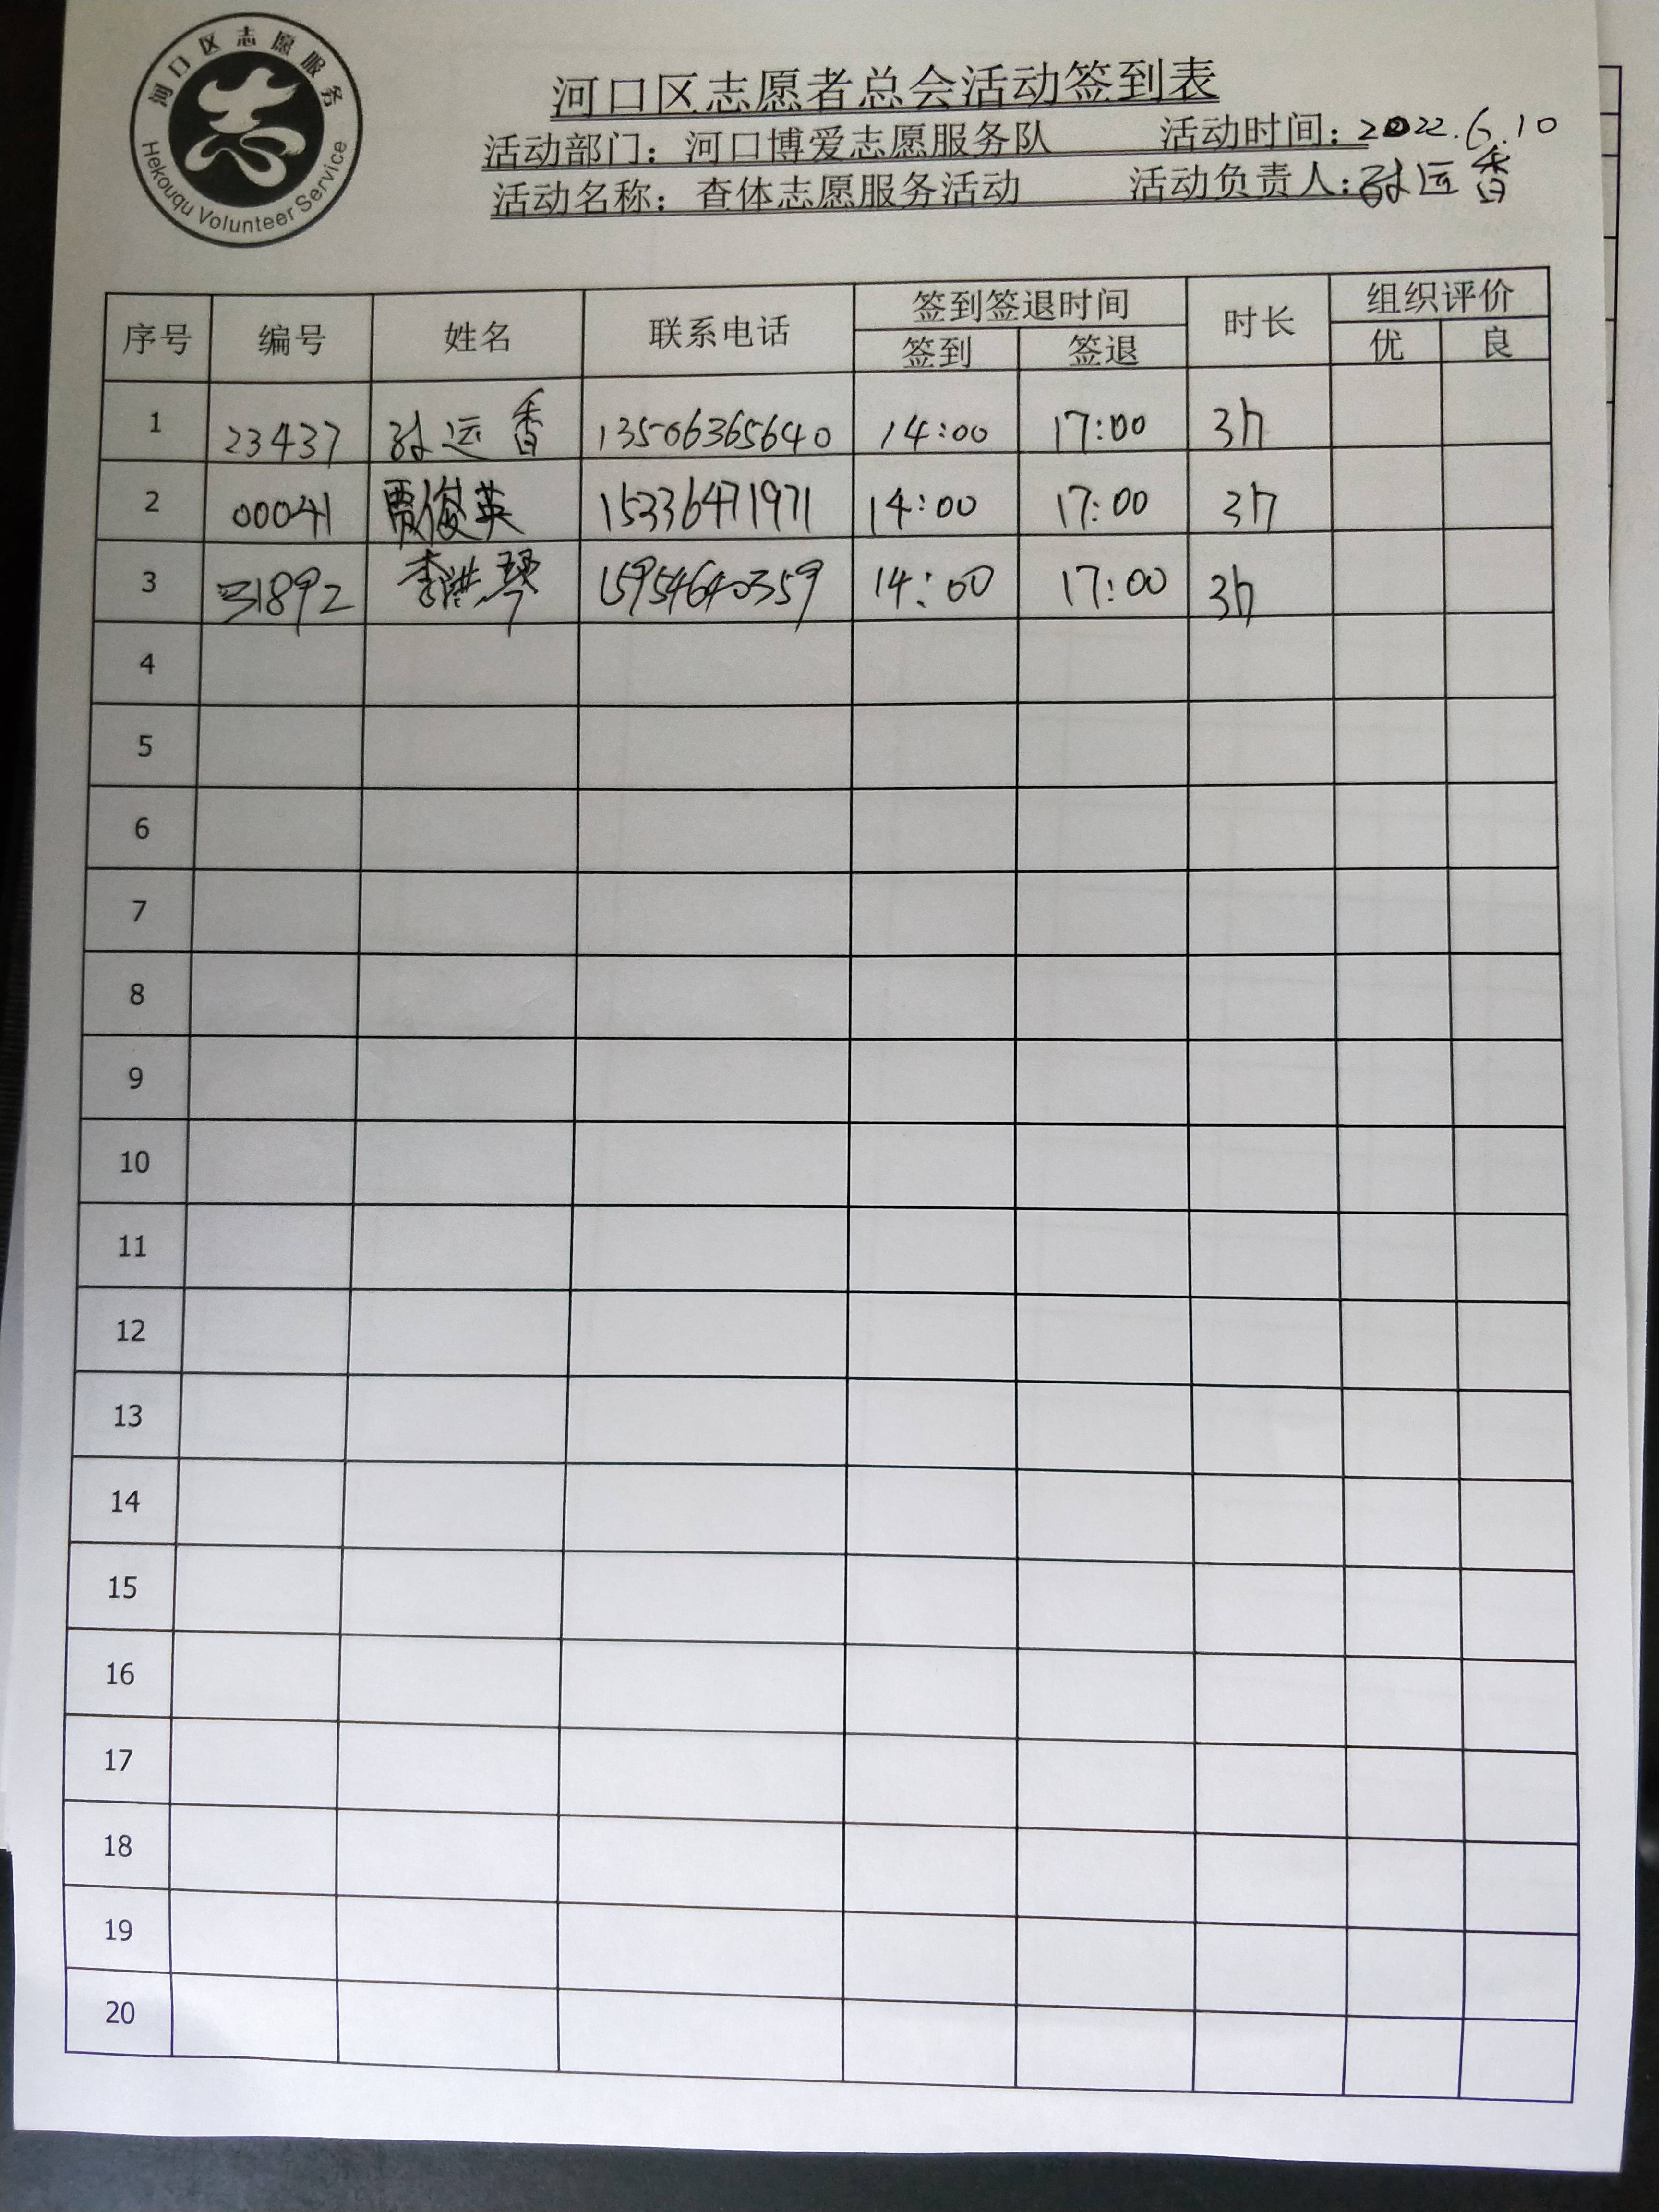 河口区志愿服务
Hekouqu Volunteer Service
河口区志愿者总会活动签到表
活动部门：河口博爱志愿服务队 活动时间：2022.6.10
活动名称：查体志愿服务活动 活动负责人：孙运香
序号 编号 姓名 联系电话 签到签退时间 时长 组织评价
签到 签退 优 良
1 23437 孙运香 13506365640 14:00 17:00 3h
2 00041 贾俊英 15336471971 14:00 17:00 3h
3 31892 李洪琴 15954640359 14:00 17:00 3h
4
5
6
7
8
9
10
11
12
13
14
15
16
17
18
19
20